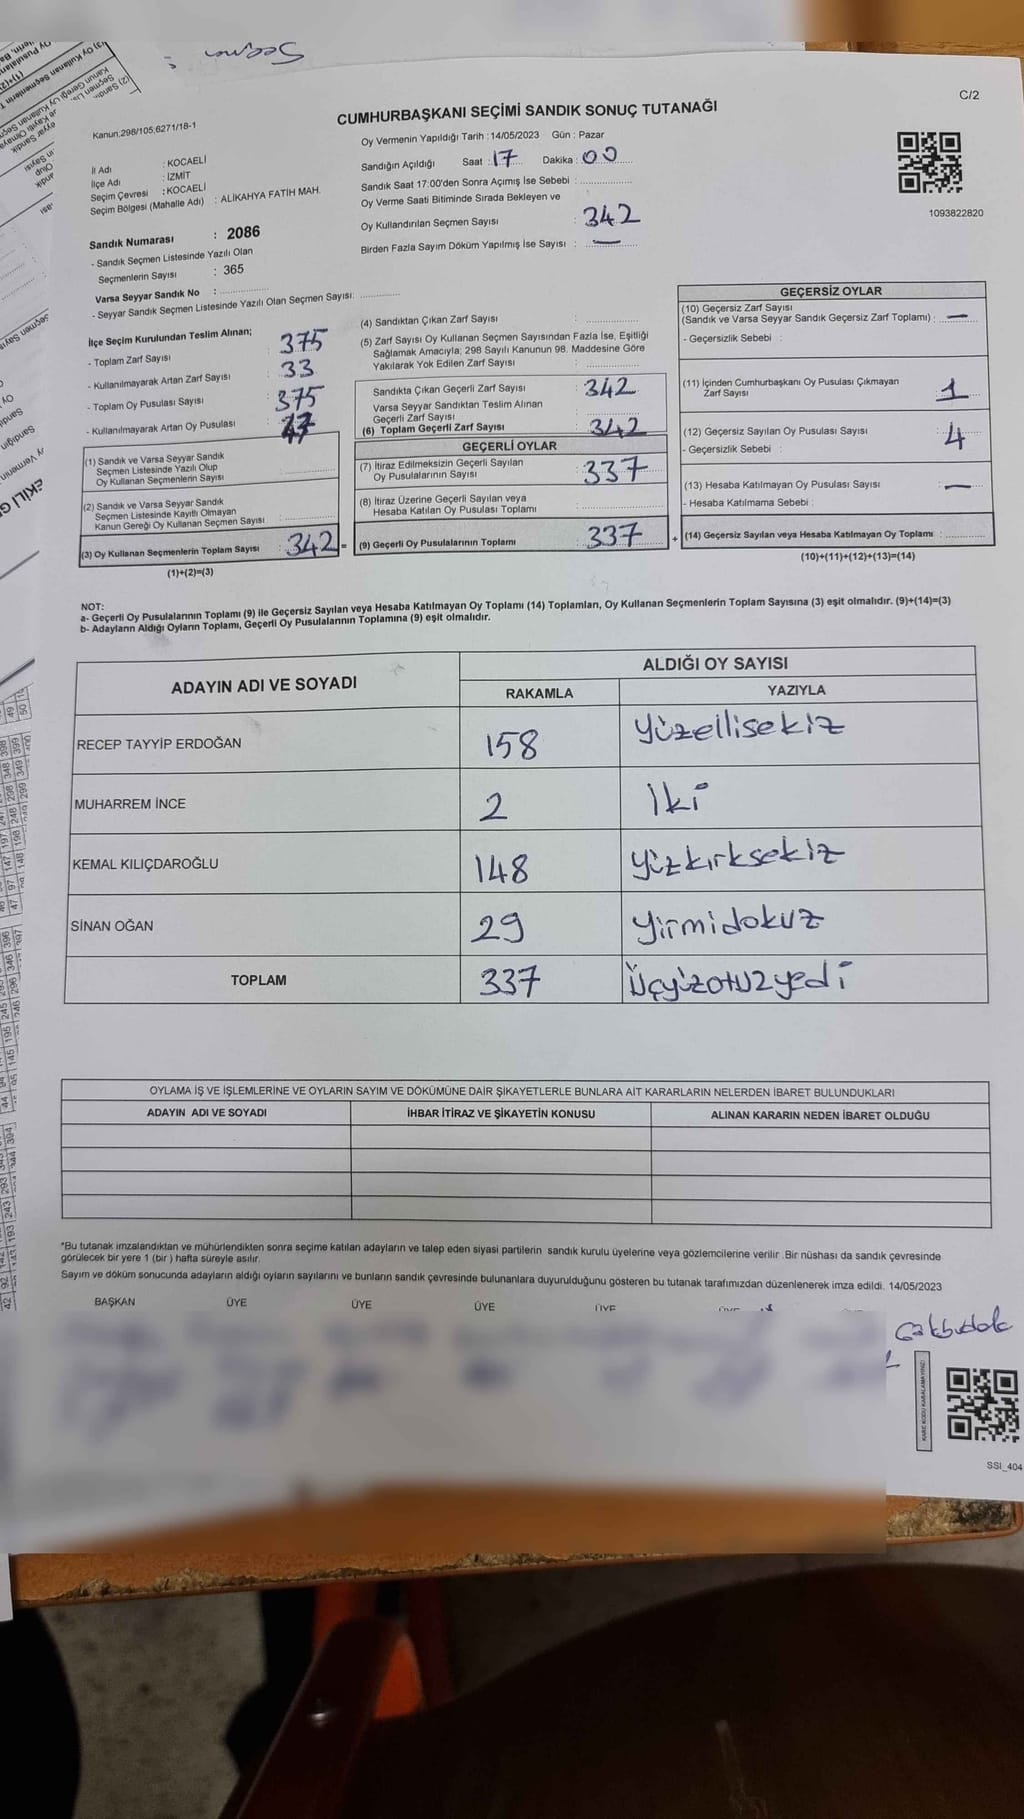 Seçmen
C/2
CUMHURBAŞKANI SEÇİMİ SANDIK SONUÇ TUTANAĞI
Kanun:298/105;6271/18-1
Oy Vermenin Yapıldığı Tarih : 14/05/2023 Gün : Pazar
İl Adı : KOCAELİ
İlçe Adı : İZMİT
Seçim Çevresi : KOCAELİ
Seçim Bölgesi (Mahalle Adı) : ALİKAHYA FATİH MAH.
Sandığın Açıldığı Saat : 17 Dakika : 00
Sandık Saat 17:00'den Sonra Açımış İse Sebebi :
Oy Verme Saati Bitiminde Sırada Bekleyen ve
Oy Kullandırılan Seçmen Sayısı : 342
Birden Fazla Sayım Döküm Yapılmış İse Sayısı : —
1093822820
Sandık Numarası : 2086
- Sandık Seçmen Listesinde Yazılı Olan
Seçmenlerin Sayısı : 365
Varsa Seyyar Sandık No :
- Seyyar Sandık Seçmen Listesinde Yazılı Olan Seçmen Sayısı:
İlçe Seçim Kurulundan Teslim Alınan;
- Toplam Zarf Sayısı 375
- Kullanılmayarak Artan Zarf Sayısı 33
- Toplam Oy Pusulası Sayısı 375
- Kullanılmayarak Artan Oy Pusulası
(1) Sandık ve Varsa Seyyar Sandık
Seçmen Listesinde Yazılı Olup
Oy Kullanan Seçmenlerin Sayısı
(2) Sandık ve Varsa Seyyar Sandık
Seçmen Listesinde Kayıtlı Olmayan
Kanun Gereği Oy Kullanan Seçmen Sayısı
(3) Oy Kullanan Seçmenlerin Toplam Sayısı : 342 =
(1)+(2)=(3)
(4) Sandıktan Çıkan Zarf Sayısı :
(5) Zarf Sayısı Oy Kullanan Seçmen Sayısından Fazla İse, Eşitliği
Sağlamak Amacıyla; 298 Sayılı Kanunun 98. Maddesine Göre
Yakılarak Yok Edilen Zarf Sayısı :
Sandıkta Çıkan Geçerli Zarf Sayısı : 342
Varsa Seyyar Sandıktan Teslim Alınan
Geçerli Zarf Sayısı :
(6) Toplam Geçerli Zarf Sayısı : 342
GEÇERLİ OYLAR
(7) İtiraz Edilmeksizin Geçerli Sayılan
Oy Pusulalarının Sayısı : 337
(8) İtiraz Üzerine Geçerli Sayılan veya
Hesaba Katılan Oy Pusulası Toplamı :
(9) Geçerli Oy Pusulalarının Toplamı : 337 +
GEÇERSİZ OYLAR
(10) Geçersiz Zarf Sayısı
(Sandık ve Varsa Seyyar Sandık Geçersiz Zarf Toplamı) : —
- Geçersizlik Sebebi :
(11) İçinden Cumhurbaşkanı Oy Pusulası Çıkmayan
Zarf Sayısı 1
(12) Geçersiz Sayılan Oy Pusulası Sayısı 4
- Geçersizlik Sebebi :
(13) Hesaba Katılmayan Oy Pusulası Sayısı : —
- Hesaba Katılmama Sebebi :
(14) Geçersiz Sayılan veya Hesaba Katılmayan Oy Toplamı :
(10)+(11)+(12)+(13)=(14)
NOT:
a- Geçerli Oy Pusulalarının Toplamı (9) ile Geçersiz Sayılan veya Hesaba Katılmayan Oy Toplamı (14) Toplamları, Oy Kullanan Seçmenlerin Toplam Sayısına (3) eşit olmalıdır. (9)+(14)=(3)
b- Adayların Aldığı Oyların Toplamı, Geçerli Oy Pusulalarının Toplamına (9) eşit olmalıdır.
ADAYIN ADI VE SOYADI
ALDIĞI OY SAYISI
RAKAMLA YAZIYLA
RECEP TAYYİP ERDOĞAN 158 yüzellisekiz
MUHARREM İNCE 2 iki
KEMAL KILIÇDAROĞLU 148 yüzkırksekiz
SİNAN OĞAN 29 yirmidokuz
TOPLAM 337 Üçyüzotuzyedi
OYLAMA İŞ VE İŞLEMLERİNE VE OYLARIN SAYIM VE DÖKÜMÜNE DAİR ŞİKAYETLERLE BUNLARA AİT KARARLARIN NELERDEN İBARET BULUNDUKLARI
ADAYIN ADI VE SOYADI İHBAR İTİRAZ VE ŞİKAYETİN KONUSU ALINAN KARARIN NEDEN İBARET OLDUĞU
*Bu tutanak imzalandıktan ve mühürlendikten sonra seçime katılan adayların ve talep eden siyasi partilerin sandık kurulu üyelerine veya gözlemcilerine verilir .Bir nüshası da sandık çevresinde
görülecek bir yere 1 (bir ) hafta süreyle asılır.
Sayım ve döküm sonucunda adayların aldığı oyların sayılarını ve bunların sandık çevresinde bulunanlara duyurulduğunu gösteren bu tutanak tarafımızdan düzenlenerek imza edildi. 14/05/2023
BAŞKAN ÜYE ÜYE ÜYE ÜYE
KARE KODU KARALAMAYINIZ!
SSI_404